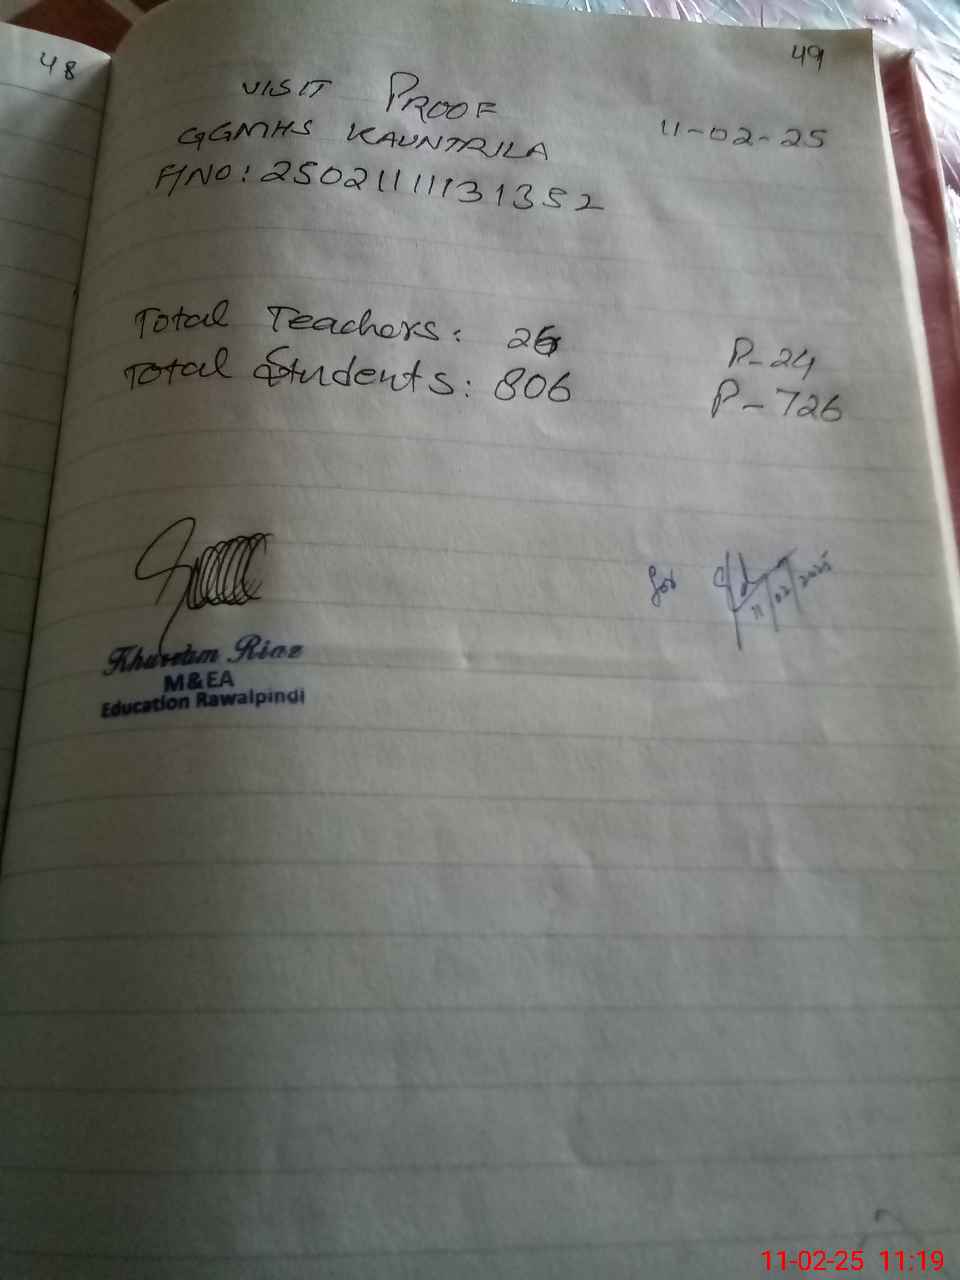 48
49
VISIT PROOF
11-02-25
GGMHS KAUNTRILA
F/NO: 25021111131352
Total Teachers: 26
P-24
Total Students: 806
P-726
for
11/02/2025
Khurram Riaz
M&EA
Education Rawalpindi
11-02-25 11:19